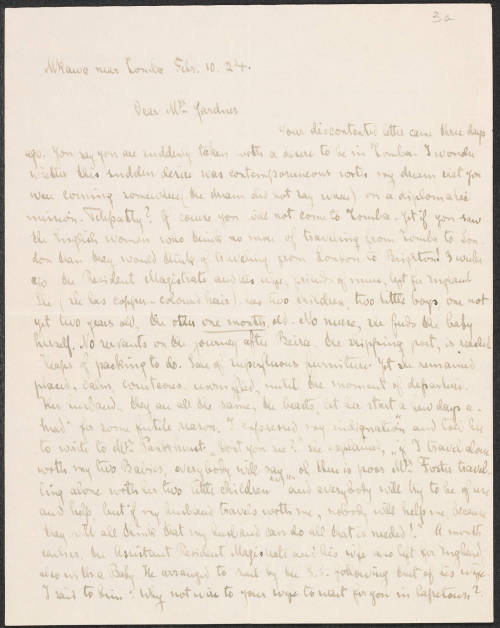 3a
Mkawa near Zomba Feb. 10. 24.
Dear Mrs Gardner
Your discontented letter came three days
ago. You say you are suddenly taken with a desire to be in Zomba. I wonder
whether this sudden desire was contemporaneous with my dream that you
were coming somewhere (the dream did not say where) on a diplomatic
mission. Telepathy? Of course you will not come to Zomba. Yet if you saw
the English women who think no more of traveling from Zomba to Lon-
don than they would think of traveling from London to Brighton! 3 weeks
ago the Resident Magistrate and his wife, friends of mine, left for England.
She (she has copper-coloured hair) has two children, two little boys, one not
yet two years old, the other one month old. No nurse, she feeds the baby
herself. No servants on the journey after Beira, the shipping port, is needed.
Heaps of packing to do. Sale of superfluous furniture. Yet she remained
placid, calm, courteous, unruffled, until the moment of departure.
Her husband, they are all the same, the beasts, let her start a few days a-
head for some futile reason. I expressed my indignation and told her
to write to Mrs Pankhurst. "Don't you see?" she explained, "if I travel alone
with my two Babies, everybody will say 'oh there is poor Mrs Foster travel-
ling alone with her two little children' and everybody will try to be of use
and help but if my husband travels with me, nobody will help me because
they will all think that my husband can do all that is needed!" A month
earlier, the Assistant Resident Magistrate and his wife also left for England
also with a Baby. He arranged to sail by the S.S. following that of his wife.
I said to him: "Why not wire to your wife to wait for you in Capetown?"